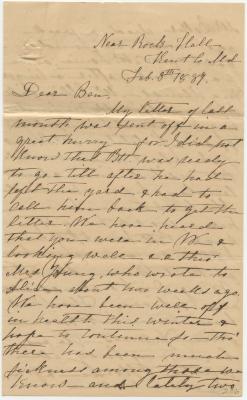 Near Rock Hall
Kent Co Md.
Feb. 8th 1889.
Dear Ben,
My letter of last
month was sent off in a
great hurry for I did not
know that Bll was ready
to go till after he had
left the yard & had to
call him back to get the
letter. We have heard
that you were in W &
looking well
Mrs Young, who wrote to
about two weeks ago.
We have been well off
in health this winter &
hope to continue so - tho'
there has been much
sickness among those we
know - and lately two